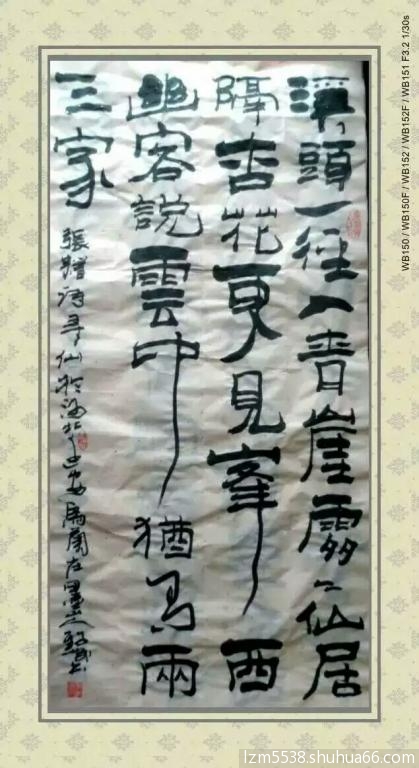 溪頭一徑入青崖處〻仙居
隔杏花更見峯西
幽客說雲中猶有兩
三家
張籍詩尋仙於湖北
WB150 / WB150F / WB152 / WB152F / WB151 F3.2 1/30s
lzm5538.shuhua66.com